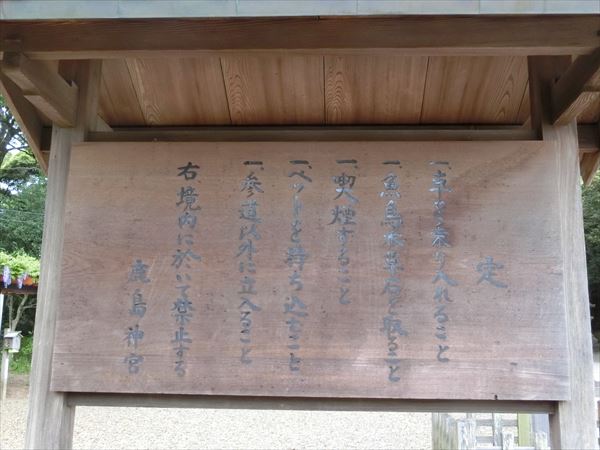 定
一、車を乗り入れること
一、魚鳥木草石を取ること
一、喫煙すること
一、ペットを持ち込むこと
一、参道以外に立入ること
右境内に於いて禁止する
鹿島神宮